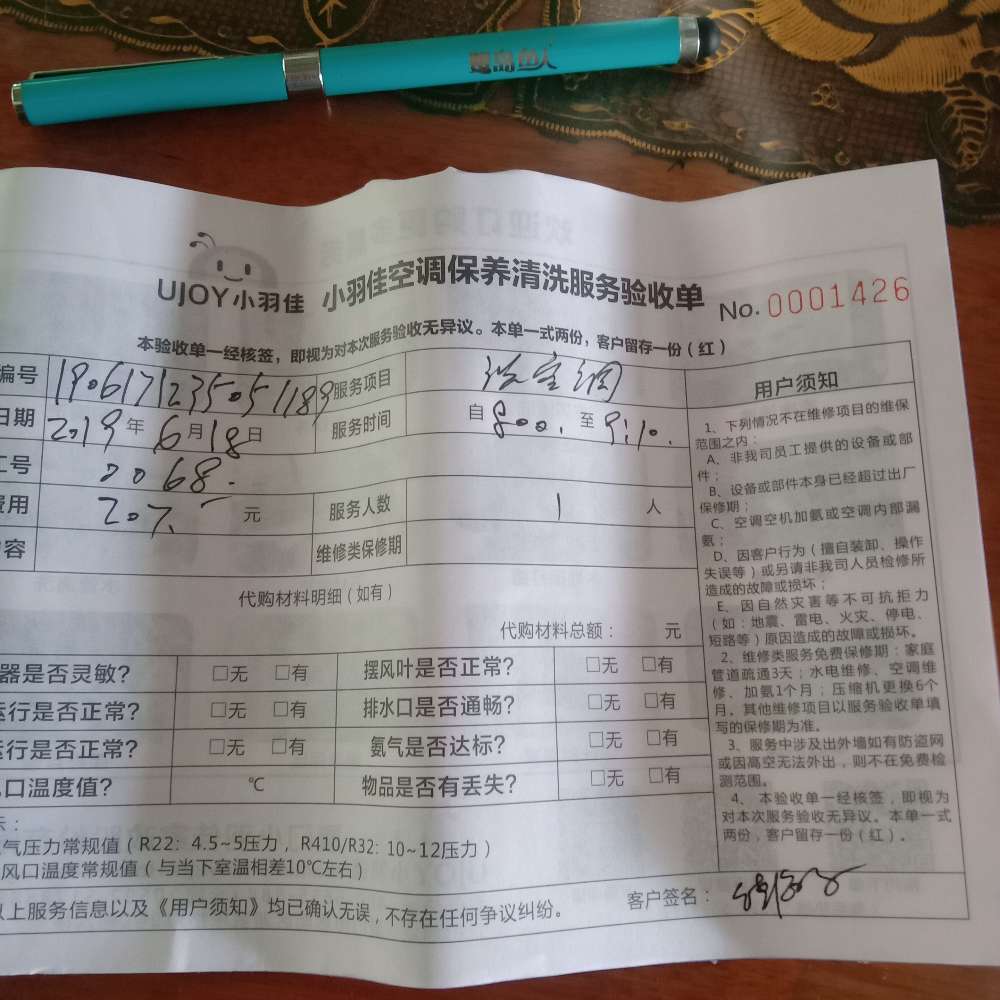 UJOY小羽佳 小羽佳空调保养清洗服务验收单 No.0001426
本验收单一经核签，即视为对本次服务验收无异议。本单一式两份，客户留存一份（红）
编号 1906171235051189 服务项目 洗空调
日期 2019年6月18日 服务时间 自8:00.至9:10.
工号 0068.
费用 207.元 服务人数 1人
容 维修类保修期
代购材料明细（如有）
代购材料总额： 元
器是否灵敏? □无 □有 摆风叶是否正常? □无 □有
运行是否正常? □无 □有 排水口是否通畅? □无 □有
运行是否正常? □无 □有 氨气是否达标? □无 □有
口温度值? ℃ 物品是否有丢失? □无 □有
示：
气压力常规值（R22：4.5~5压力，R410/R32: 10~12压力）
风口温度常规值（与当下室温相差10℃左右）
以上服务信息以及《用户须知》均已确认无误，不存在任何争议纠纷。 客户签名：
用户须知
1、下列情况不在维修项目的维保
范围之内：
A、非我司员工提供的设备或部
件；
B、设备或部件本身已经超过出厂
保修期；
C、空调空机加氨或空调内部漏
氨；
D、因客户行为（擅自装卸、操作
失误等）或另请非我司人员检修所
造成的故障或损坏；
E、因自然灾害等不可抗拒力
（如：地震、雷电、火灾、停电、
短路等）原因造成的故障或损坏。
2、维修类服务免费保修期：家庭
管道疏通3天；水电维修、空调维
修、加氨1个月；压缩机更换6个
月。其他维修项目以服务验收单填
写的保修期为准。
3、服务中涉及出外墙如有防盗网
或因高空无法外出，则不在免费检
测范围。
4、本验收单一经核签，即视为
对本次服务验收无异议。本单一式
两份，客户留存一份（红）。